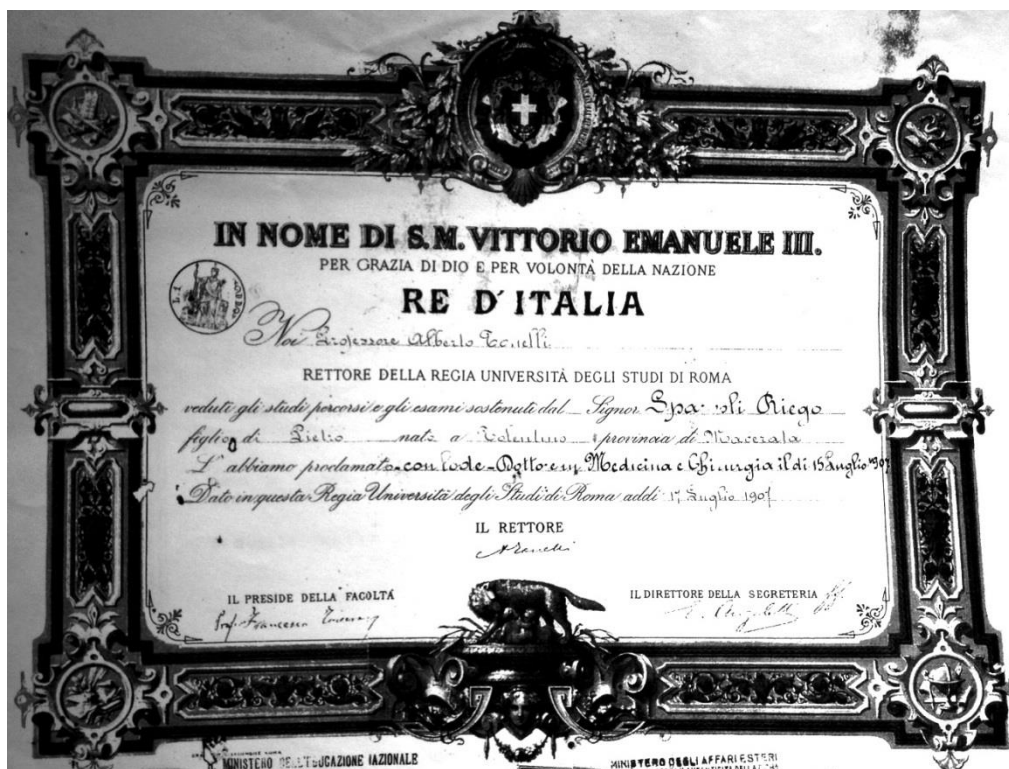 IN NOME DI S.M. VITTORIO EMANUELE III.
PER GRAZIA DI DIO E PER VOLONTÀ DELLA NAZIONE
RE D'ITALIA
L. 1
Noi Professore Alberto Tonelli
RETTORE DELLA REGIA UNIVERSITÀ DEGLI STUDI DI ROMA
veduti gli studi percorsi e gli esami sostenuti dal Signor Riego
figlio di Pietro nato a Tolentino provincia di Macerata
L'abbiamo proclamato con lode Dottore in Medicina e Chirurgia il dì 15 Luglio 1907
Dato in questa Regia Università degli Studi di Roma addì 17 Luglio 1907
IL RETTORE
ATonelli
IL PRESIDE DELLA FACOLTÀ
IL DIRETTORE DELLA SEGRETERIA
Prof. Francesco
MINISTERO DELL'EDUCAZIONE NAZIONALE
MINISTERO DEGLI AFFARI ESTERI